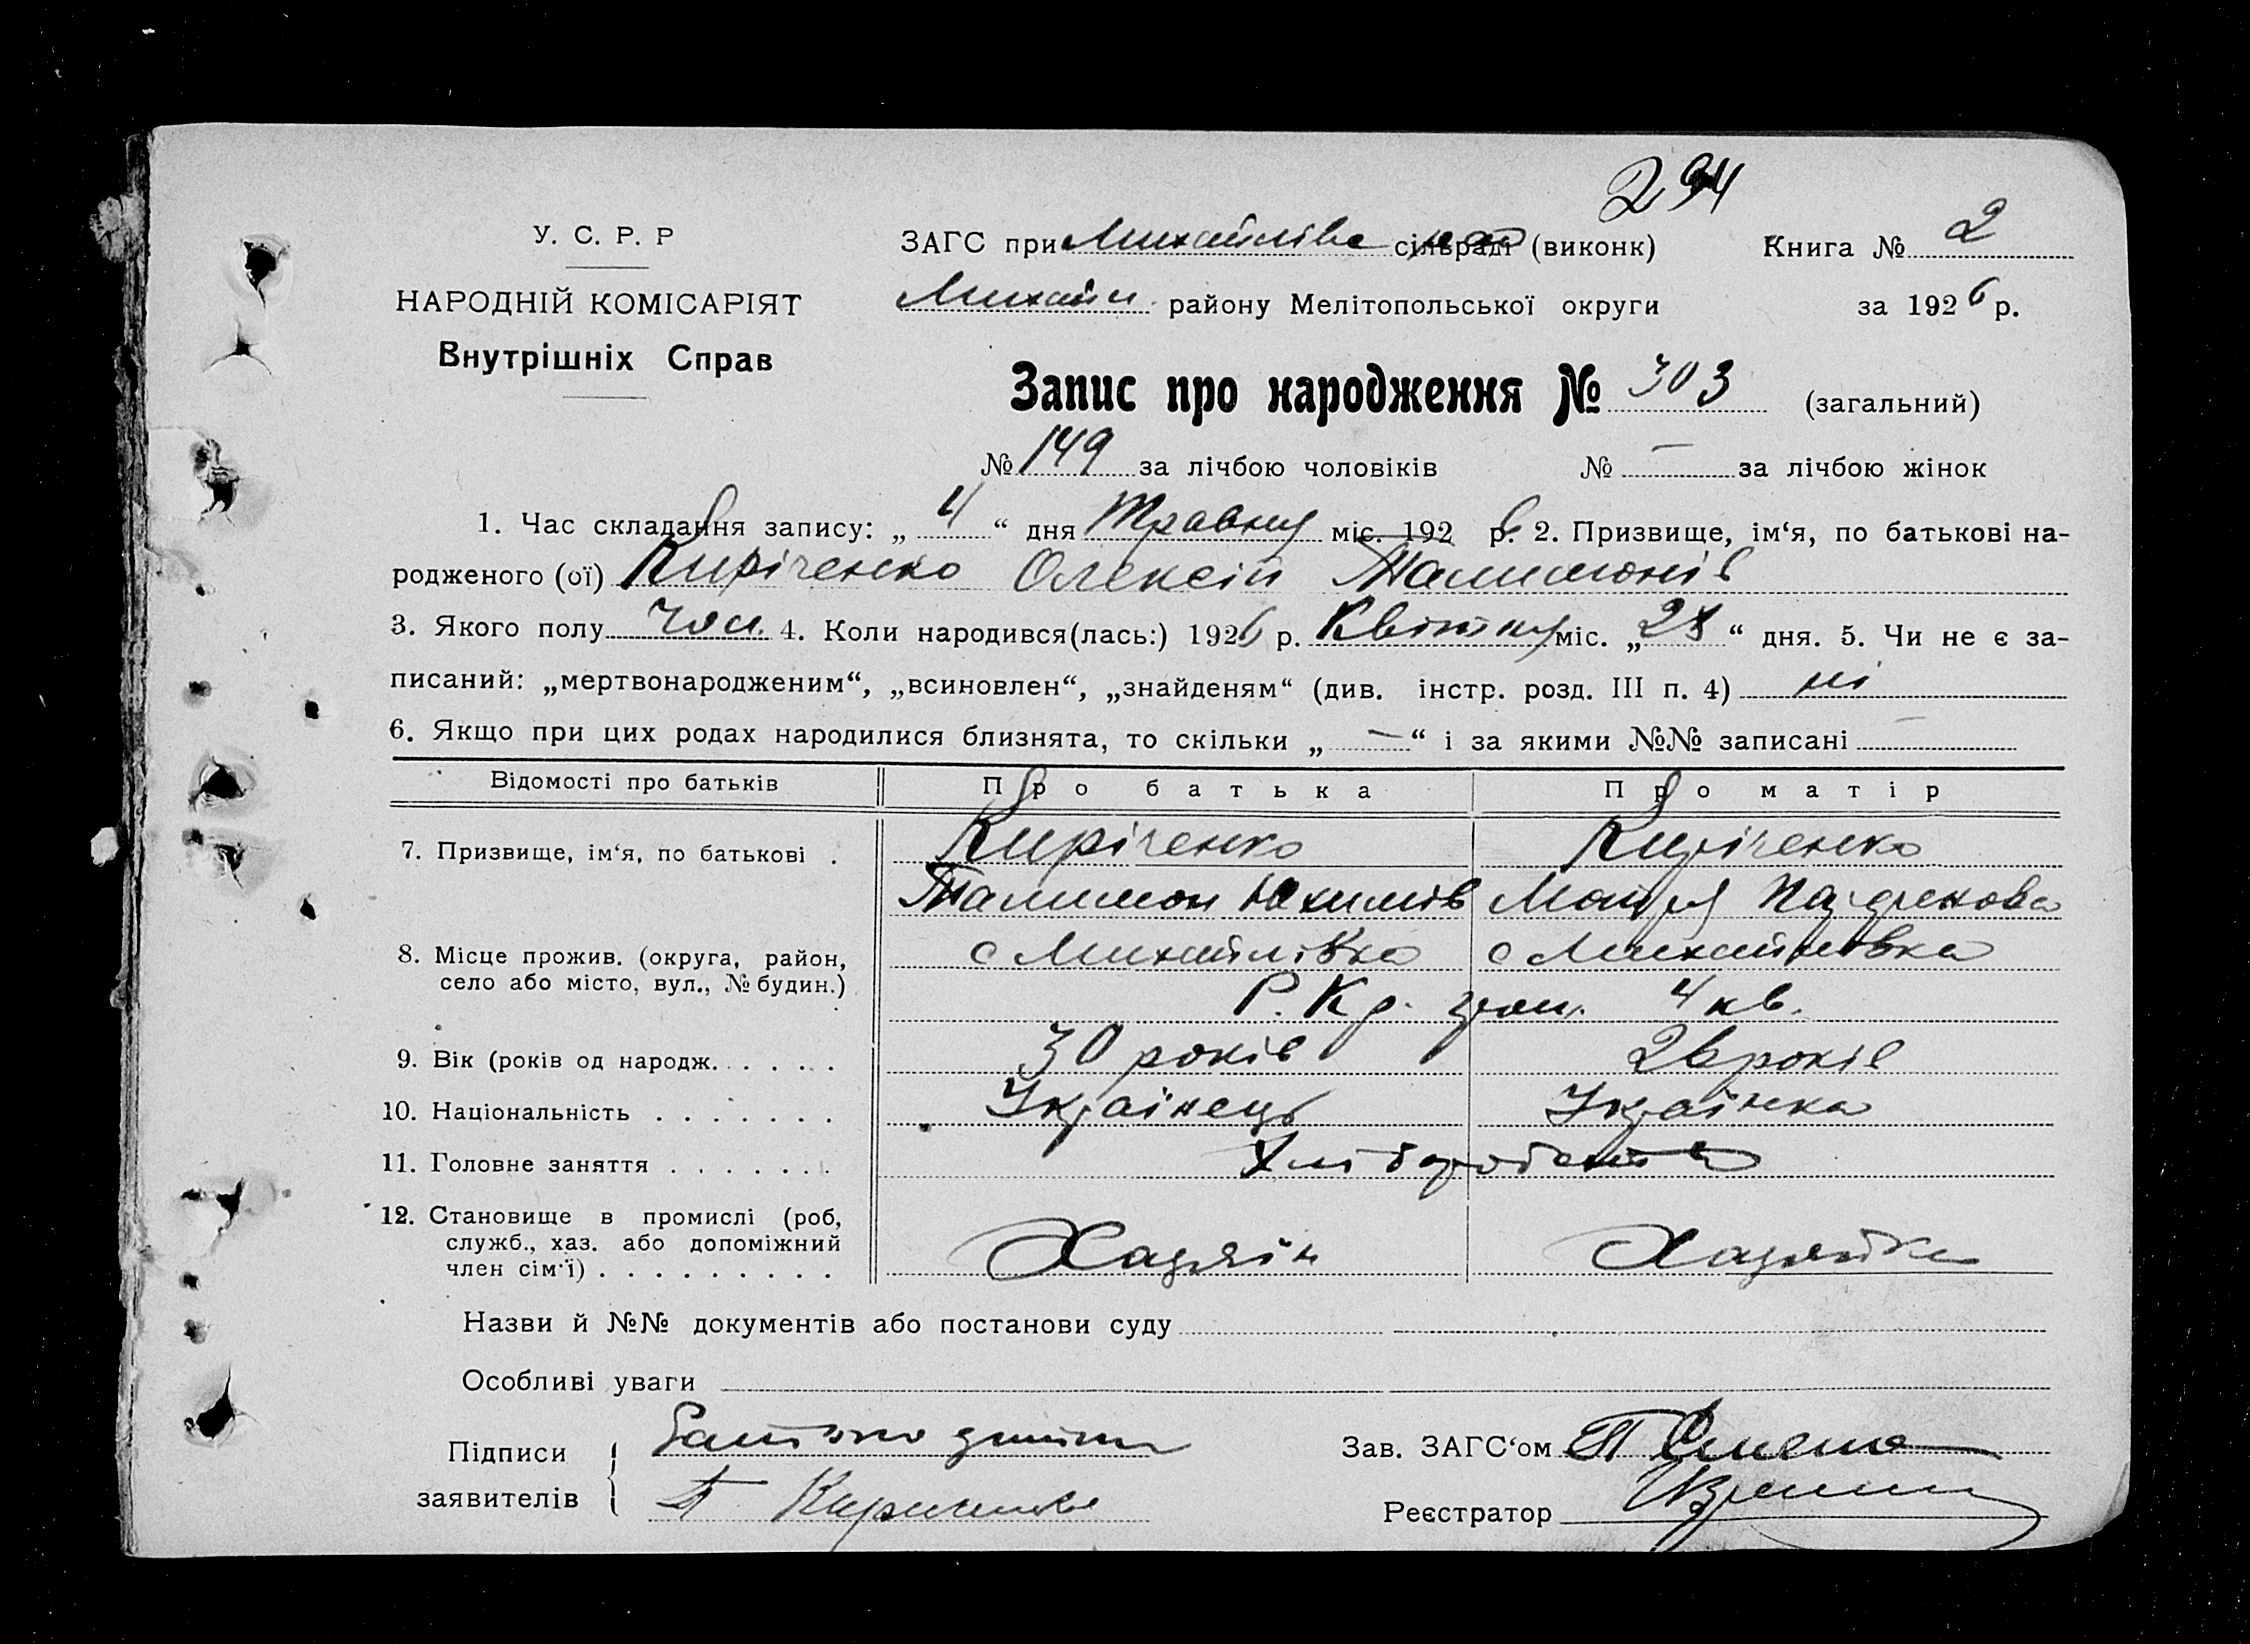 294
У. С. Р. Р
ЗАГС при Михайлівс сільраді (виконк) Книга № 2
НАРОДНІЙ КОМІСАРІЯТ
Михайл. району Мелітопольської округи за 1926 р.
Внутрішніх Справ
Запис про народження № 303 (загальний)
№ 149 за лічбою чоловіків № — за лічбою жінок
1. Час складання запису: „ 4 “ дня Травня міс. 1926 р. 2. Призвище, ім‘я, по батькові на-
родженого (ої) Киріченко Олексій Талимонів
3. Якого полу чол. 4. Коли народився(лась:) 1926 р. Квітня міс. „ 28 “ дня. 5. Чи не є за-
писаний: „мертвонародженим“, „всиновлен“, „знайденям“ (див. інстр. розд. III п. 4) ні
6. Якщо при цих родах народилися близнята, то скільки „ — “ і за якими №№ записані —
Відомості про батьків Про батька Про матір
7. Призвище, ім‘я, по батькові . Киріченко Киріченко
Талимон Юхимів Марія
8. Місце прожив. (округа, район, с Михайлівка с Михайлівка
село або місто, вул., № будин.) Р. Кр. гром. 4 кв.
9. Вік (років од народж. . . . . . 30 років 26 років
10. Національність . . . . . . . Українець Українка
11. Головне заняття . . . . . . . Хліборобство
12. Становище в промислі (роб,
служб., хаз. або допоміжний Хазяїн Хазяйка
член сім‘ї) . . . . . . . . .
Назви й №№ документів або постанови суду
Особливі уваги
Підписи Батько дитини Зав. ЗАГС‘ом
заявителів Т Кириченко Реєстратор